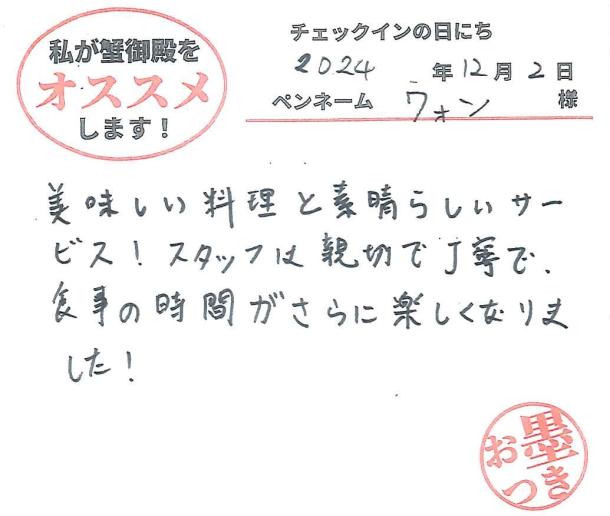 私が蟹御殿を
オススメ
します！
チェックインの日にち
2024 年 12 月 2 日
ペンネーム ウォン 様
美味しい料理と素晴らしいサー
ビス！スタッフは親切で丁寧で、
食事の時間がさらに楽しくなりま
した！
お墨
つき